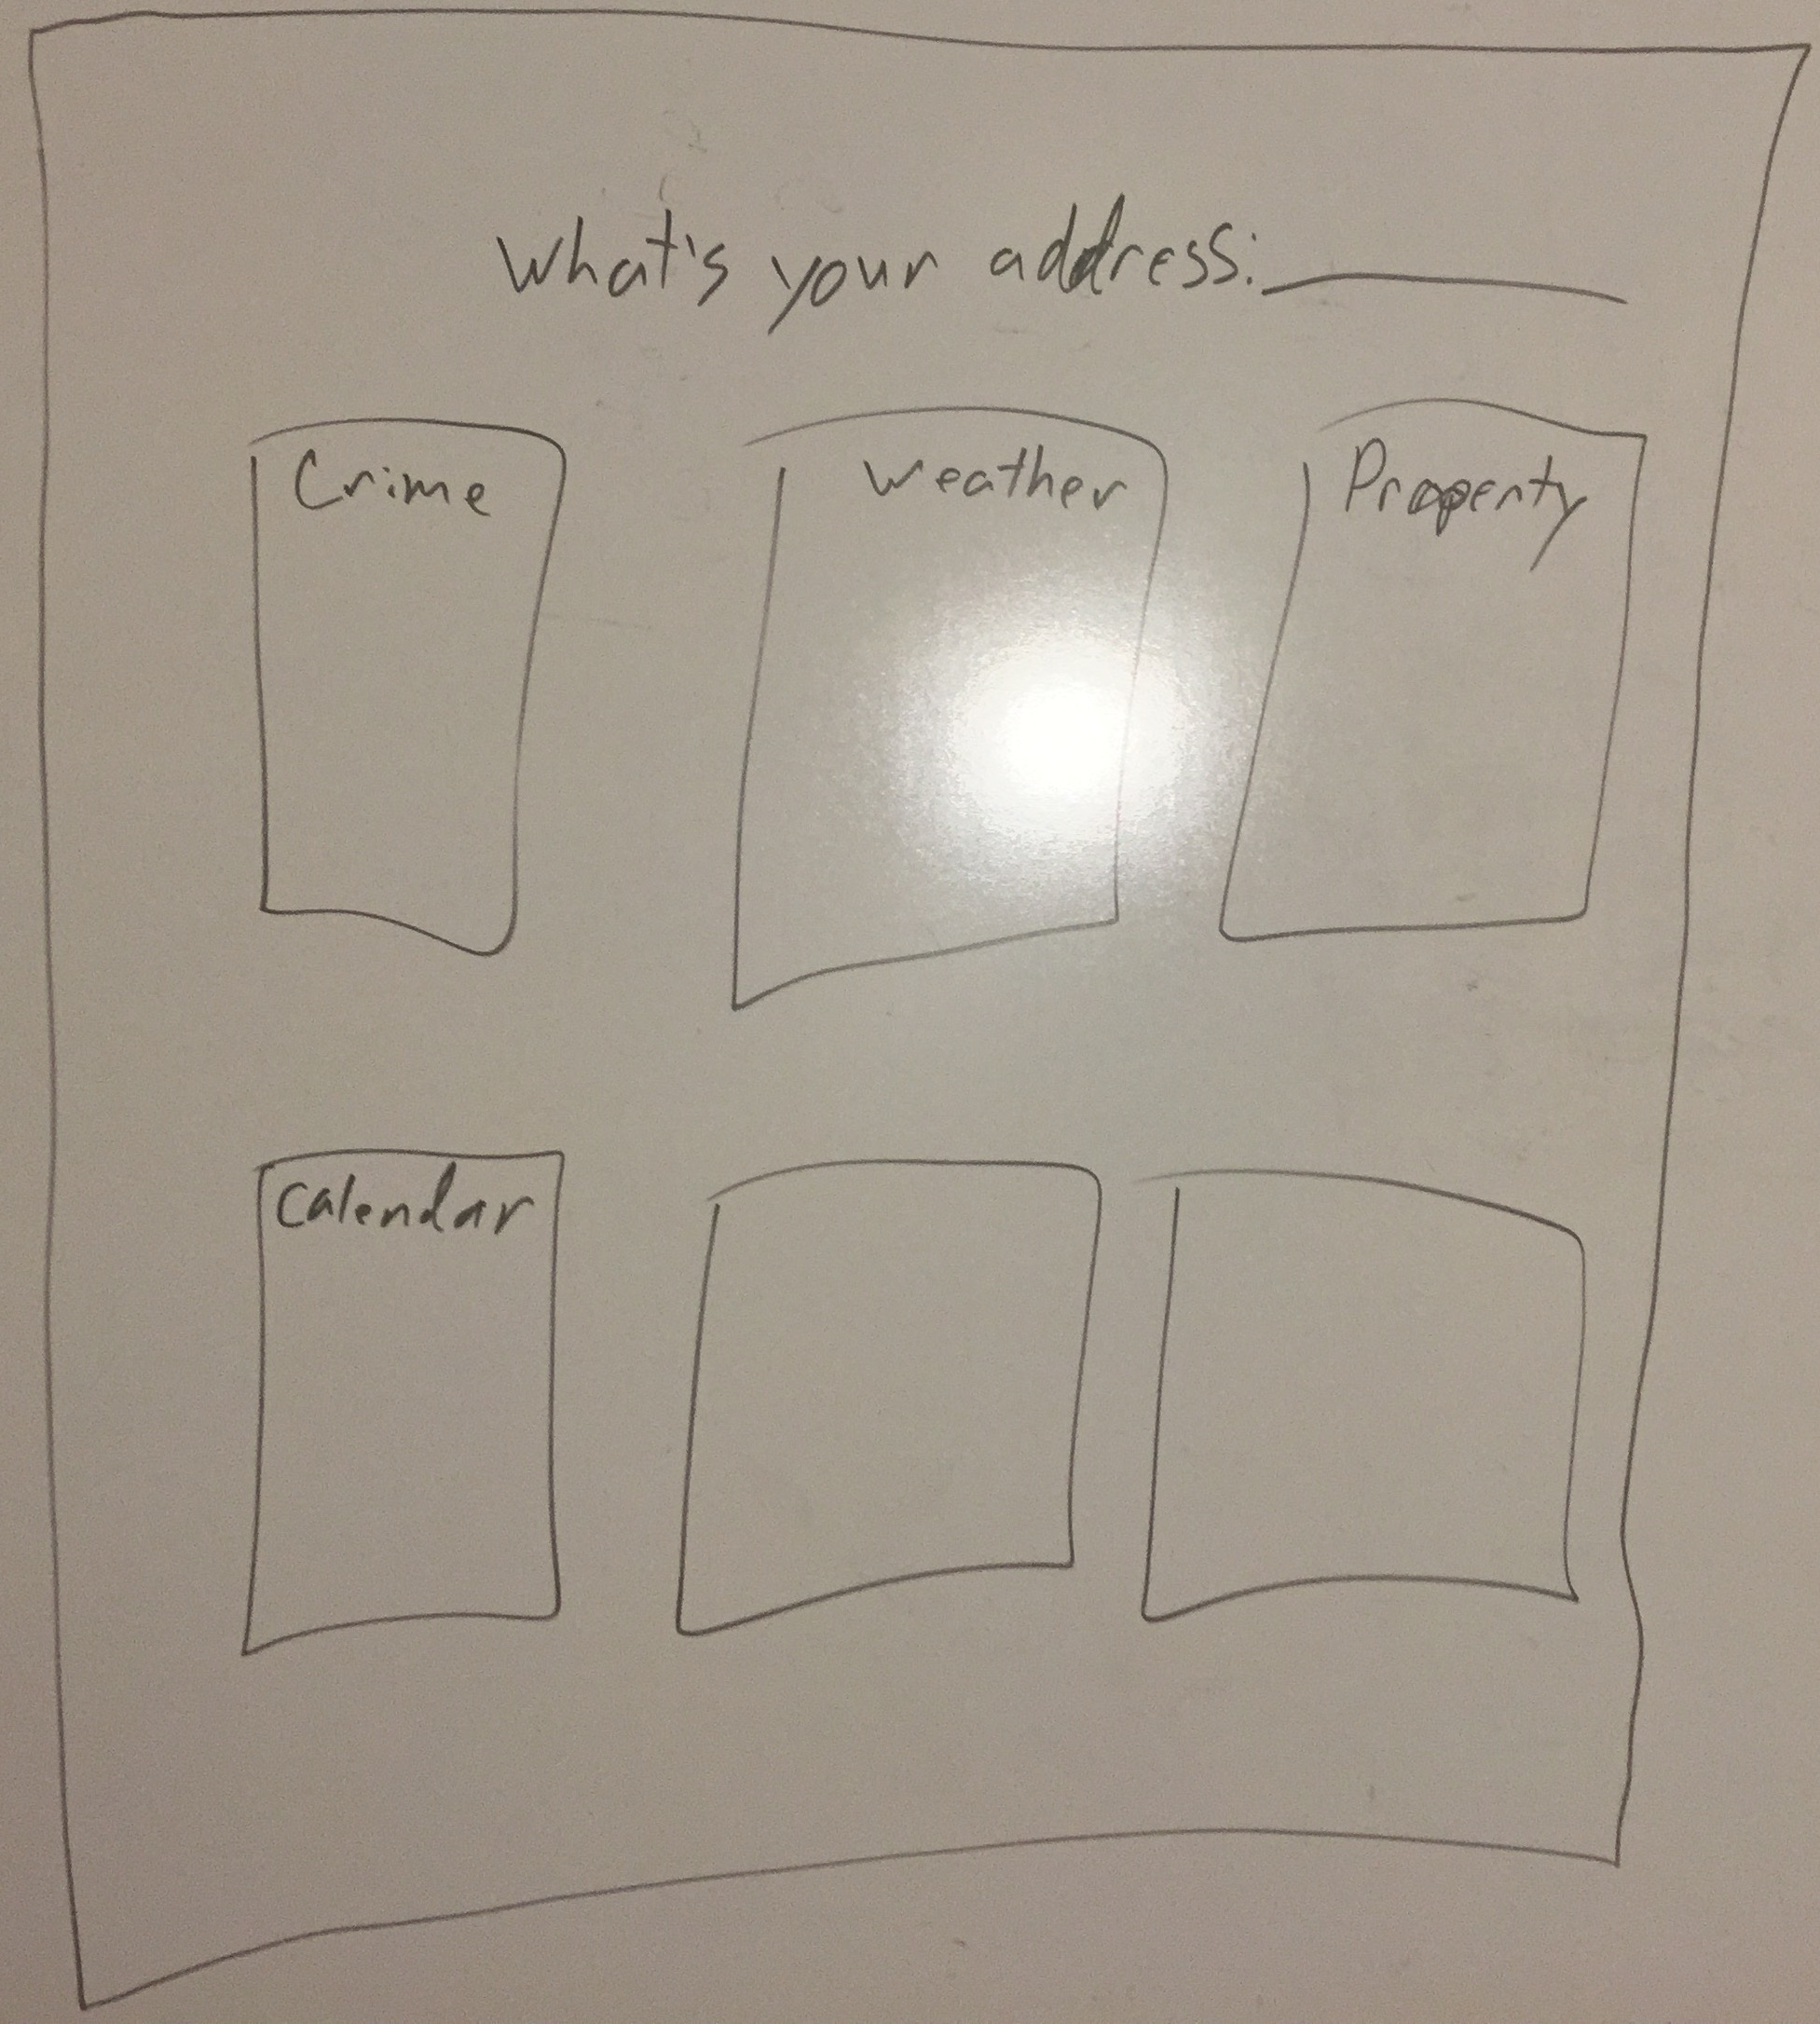 What's your address:
Crime
Weather
Property
Calendar